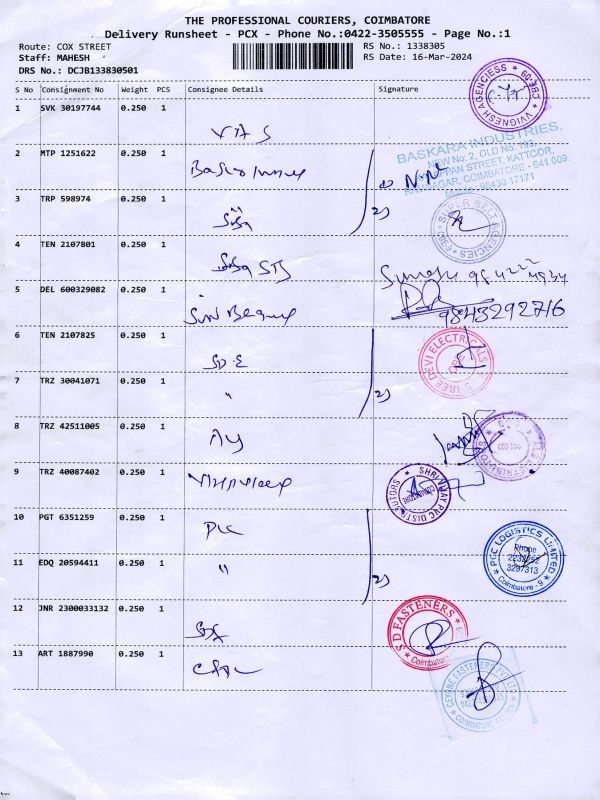 THE PROFESSIONAL COURIERS, COIMBATORE
Delivery Runsheet - PCX - Phone No.:0422-3505555 - Page No.:1
Route: COX STREET RS No.: 1338305
Staff: MAHESH RS Date: 16-Mar-2024
DRS No.: DCJB133830501
S No Consignment No Weight PCS Consignee Details Signature
VIGNESH AGENCIESS CBE.09
1 SVK 30197744 0.250 1
VAS
BASKARA INDUSTRIES,
NEW No: 2, OLD No: 193
STREET, KATTOOR,
COIMBATORE - 641 009.
98430 17171
2 MTP 1251622 0.250 1
N.N
2)
3 TRP 598974 0.250 1
SUPER BELT AGENCIES
Siba
4 TEN 2107801 0.250 1
Siba STS
5 DEL 600329082 0.250 1
9843292716
6 TEN 2107825 0.250 1
SREE DEVI ELECTRICALS
SD.E
7 TRZ 30041071 0.250 1
" 2)
8 TRZ 42511005 0.250 1
AY
9 TRZ 40087402 0.250 1
SHRI VIJAY PVC DISTRIBUTORS
COIMBATORE
10 PGT 6351259 0.250 1
PGC LOGISTICS LIMITED
Phone
3297313
Coimbatore - 9
11 EDQ 20594411 0.250 1
" 2)
12 JNR 2300033132 0.250 1
S D FASTENERS
Coimbatore
13 ART 1887990 0.250 1
FASTENERS PVT LTD
COIMBATORE